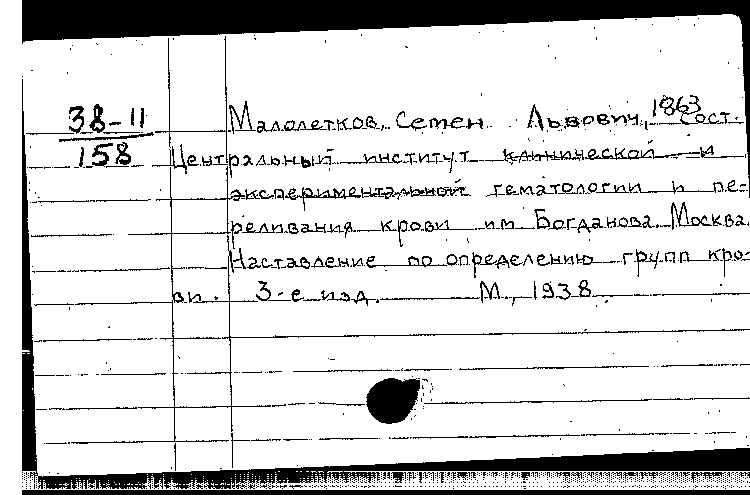 38-11
158
Малолетков, Семен Львович, 1863 сост.
Центральный институт клинической и
экспериментальной гематологии и пе-
реливания крови им. Богданова. Москва.
Наставление по определению групп кро-
ви. 3-е изд. М., 1938.